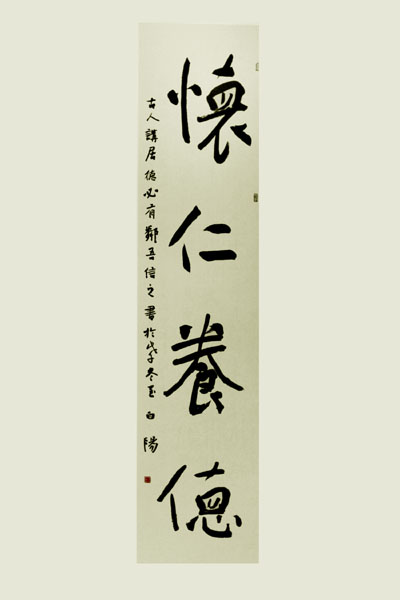 懷仁養德
古人講居德必有鄰吾信之書於戊子冬至白陽